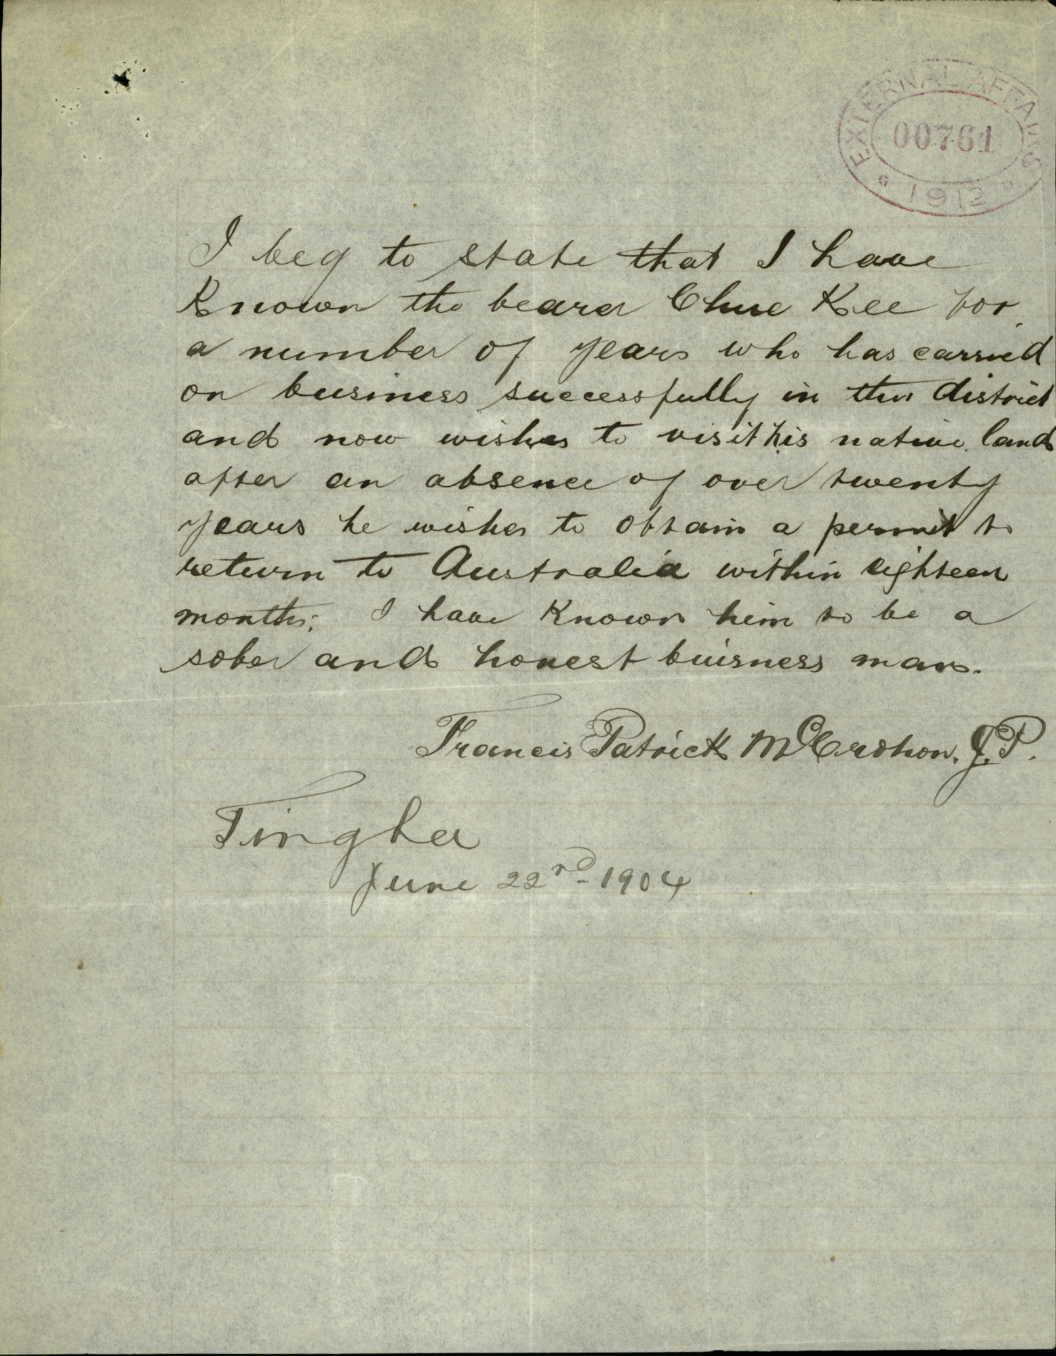 EXTERNAL AFFAIRS
00761
1912
I beg to state that I have
Known the bearer Chue Kee for
a number of years who has carried
on business successfully in this district
and now wishes to visit his native land
after an absence of over twenty
years he wishes to obtain a permit to
return to Australia within eighteen
months; I have Known him to be a
sober and honest buisness man.
Francis Patrick J.P.
Tingha
June 22nd 1904